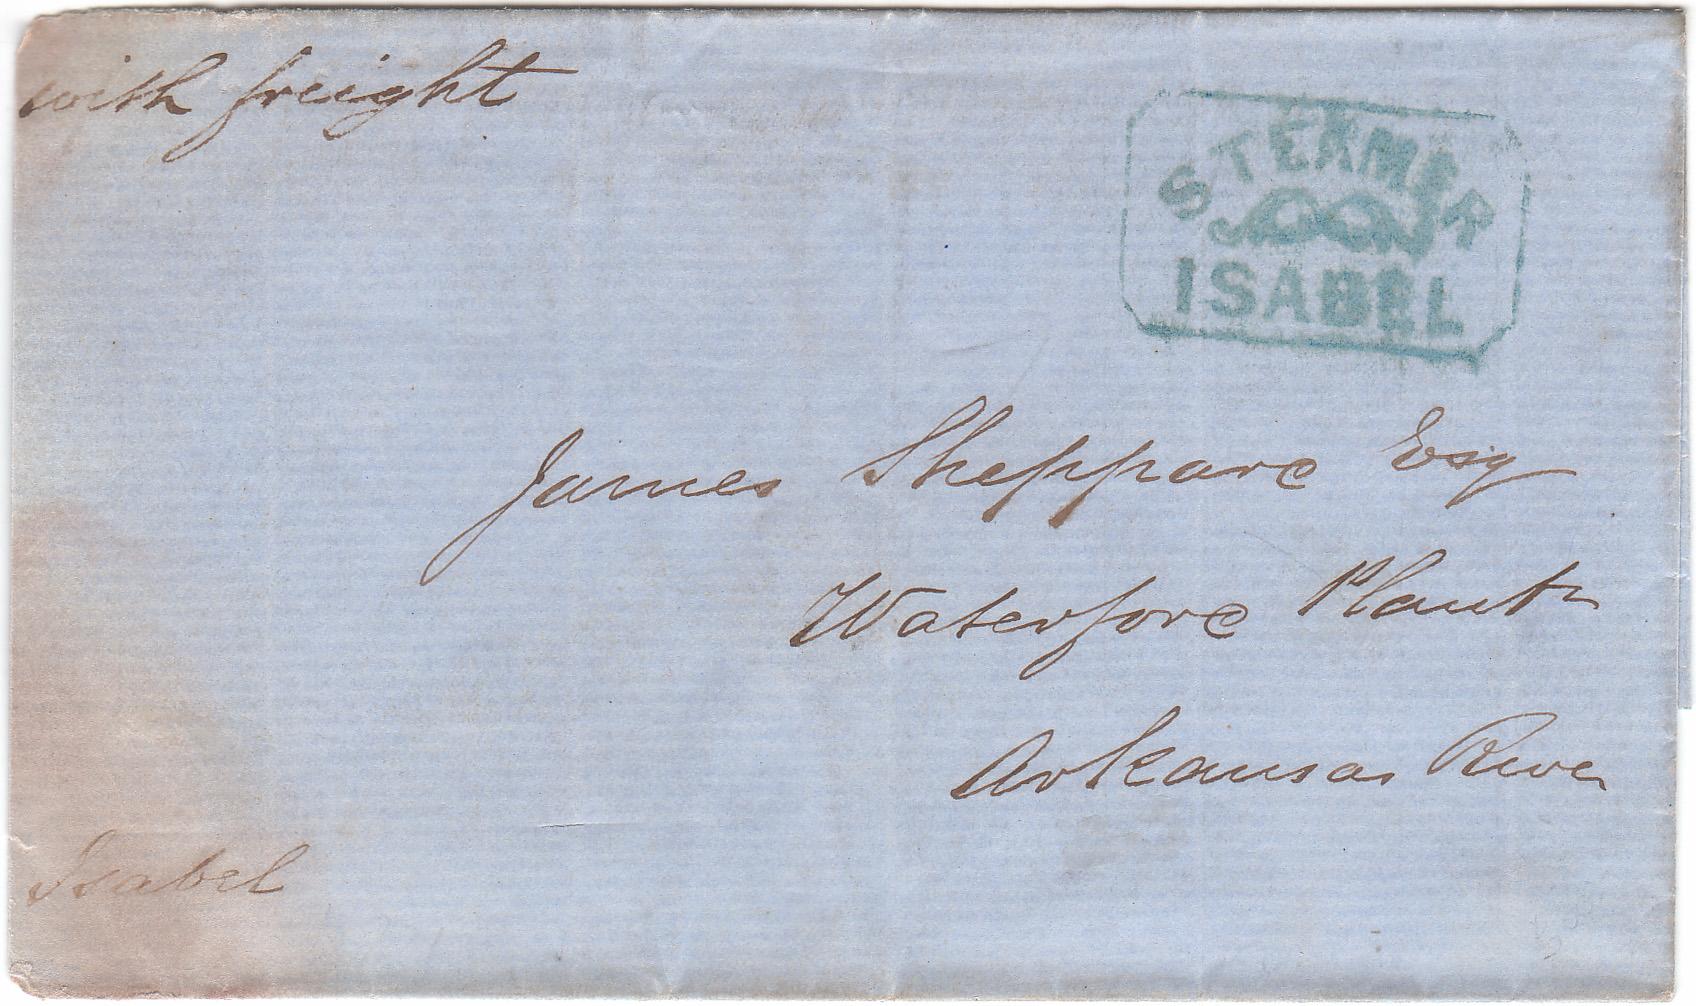 with freight
STEAMER
ISABEL
James Sheppard Esq
Waterford Plantn
Arkansas River
Isabel